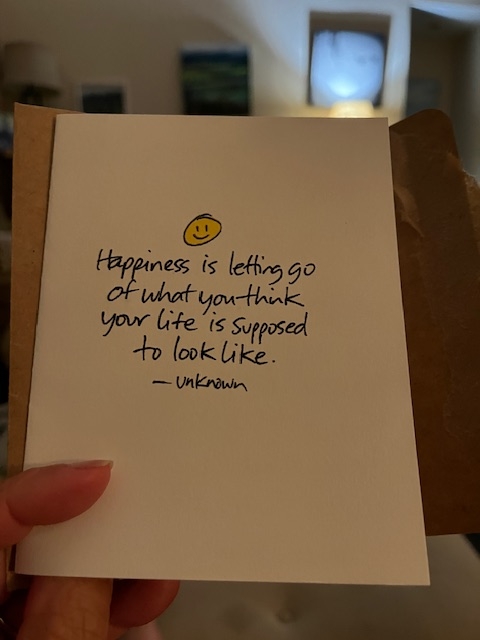 Happiness is letting go
of what you think
your life is supposed
to look like.
— unknown